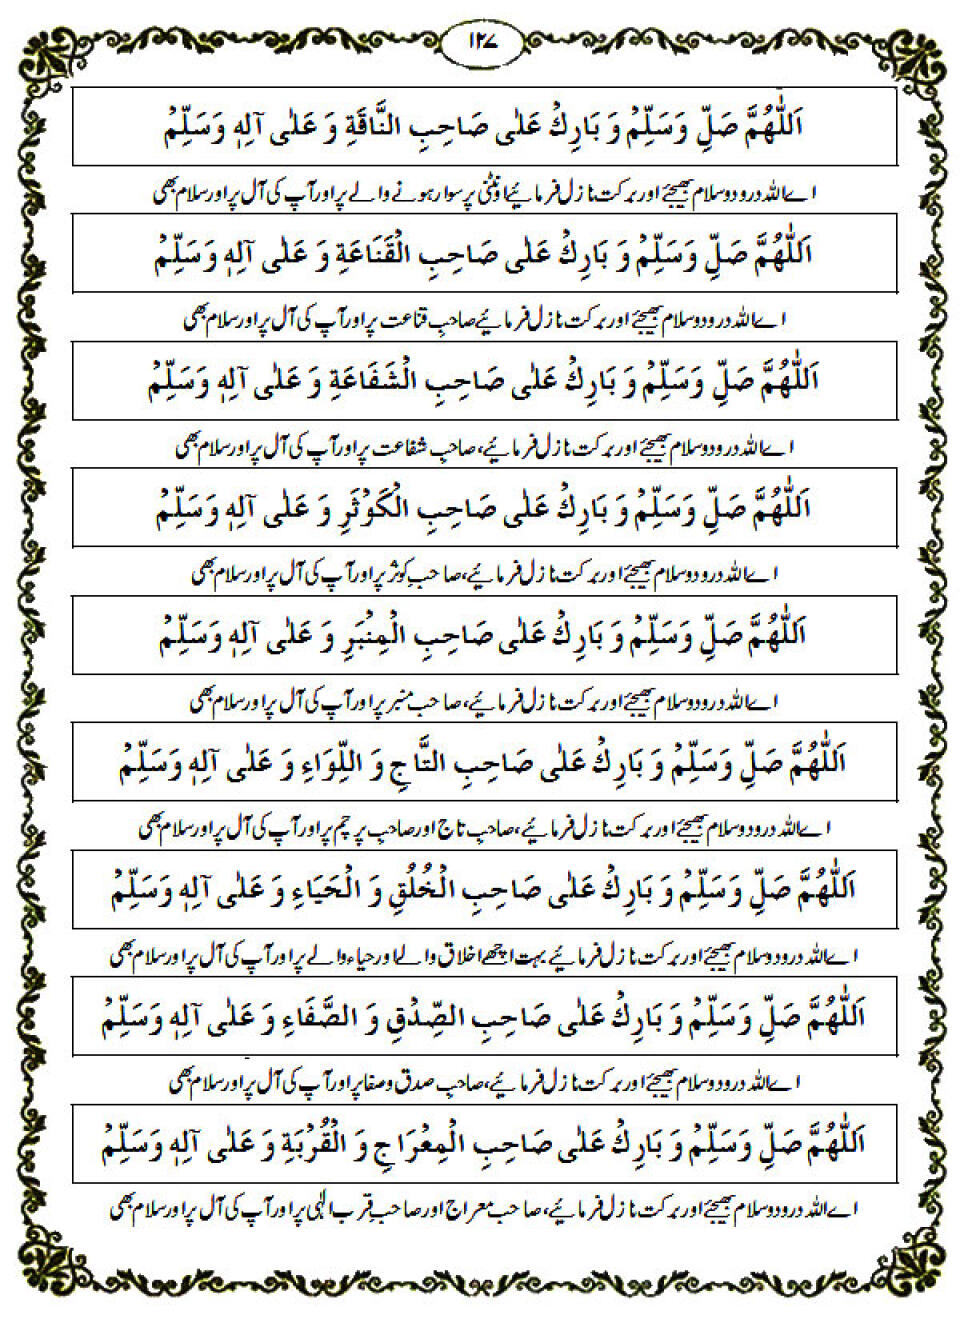 ۱۲۷
اَللّٰهُمَّ صَلِّ وَسَلِّمْ وَ بَارِكْ عَلٰى صَاحِبِ النَّاقَةِ وَ عَلٰى آلِهٖ وَسَلِّمْ
اے اللہ درود و سلام بھیجئے اور برکت نازل فرمائیے اونٹنی پر سوار ہونے والے پر اور آپ کی آل پر اور سلام بھی
اَللّٰهُمَّ صَلِّ وَسَلِّمْ وَ بَارِكْ عَلٰى صَاحِبِ الْقَنَاعَةِ وَ عَلٰى آلِهٖ وَسَلِّمْ
اے اللہ درود و سلام بھیجئے اور برکت نازل فرمائیے صاحبِ قناعت پر اور آپ کی آل پر اور سلام بھی
اَللّٰهُمَّ صَلِّ وَسَلِّمْ وَ بَارِكْ عَلٰى صَاحِبِ الْشَفَاعَةِ وَ عَلٰى آلِهٖ وَسَلِّمْ
اے اللہ درود و سلام بھیجئے اور برکت نازل فرمائیے، صاحبِ شفاعت پر اور آپ کی آل پر اور سلام بھی
اَللّٰهُمَّ صَلِّ وَسَلِّمْ وَ بَارِكْ عَلٰى صَاحِبِ الْكَوْثَرِ وَ عَلٰى آلِهٖ وَسَلِّمْ
اے اللہ درود و سلام بھیجئے اور برکت نازل فرمائیے، صاحبِ کوثر پر اور آپ کی آل پر اور سلام بھی
اَللّٰهُمَّ صَلِّ وَسَلِّمْ وَ بَارِكْ عَلٰى صَاحِبِ الْمِنْبَرِ وَ عَلٰى آلِهٖ وَسَلِّمْ
اے اللہ درود و سلام بھیجئے اور برکت نازل فرمائیے، صاحبِ منبر پر اور آپ کی آل پر اور سلام بھی
اَللّٰهُمَّ صَلِّ وَسَلِّمْ وَ بَارِكْ عَلٰى صَاحِبِ التَّاجِ وَ اللِّوَاءِ وَ عَلٰى آلِهٖ وَسَلِّمْ
اے اللہ درود و سلام بھیجئے اور برکت نازل فرمائیے، صاحبِ تاج اور صاحبِ پرچم پر اور آپ کی آل پر اور سلام بھی
اَللّٰهُمَّ صَلِّ وَسَلِّمْ وَ بَارِكْ عَلٰى صَاحِبِ الْخُلُقِ وَ الْحَيَاءِ وَ عَلٰى آلِهٖ وَسَلِّمْ
اے اللہ درود و سلام بھیجئے اور برکت نازل فرمائیے بہت اچھے اخلاق والے اور حیاء والے پر اور آپ کی آل پر اور سلام بھی
اَللّٰهُمَّ صَلِّ وَسَلِّمْ وَ بَارِكْ عَلٰى صَاحِبِ الصِّدْقِ وَ الصَّفَاءِ وَ عَلٰى آلِهٖ وَسَلِّمْ
اے اللہ درود و سلام بھیجئے اور برکت نازل فرمائیے، صاحبِ صدق و صفا پر اور آپ کی آل پر اور سلام بھی
اَللّٰهُمَّ صَلِّ وَسَلِّمْ وَ بَارِكْ عَلٰى صَاحِبِ الْمِعْرَاجِ وَ الْقُرْبَةِ وَ عَلٰى آلِهٖ وَسَلِّمْ
اے اللہ درود و سلام بھیجئے اور برکت نازل فرمائیے، صاحبِ معراج اور صاحبِ قربِ الٰہی پر اور آپ کی آل پر اور سلام بھی